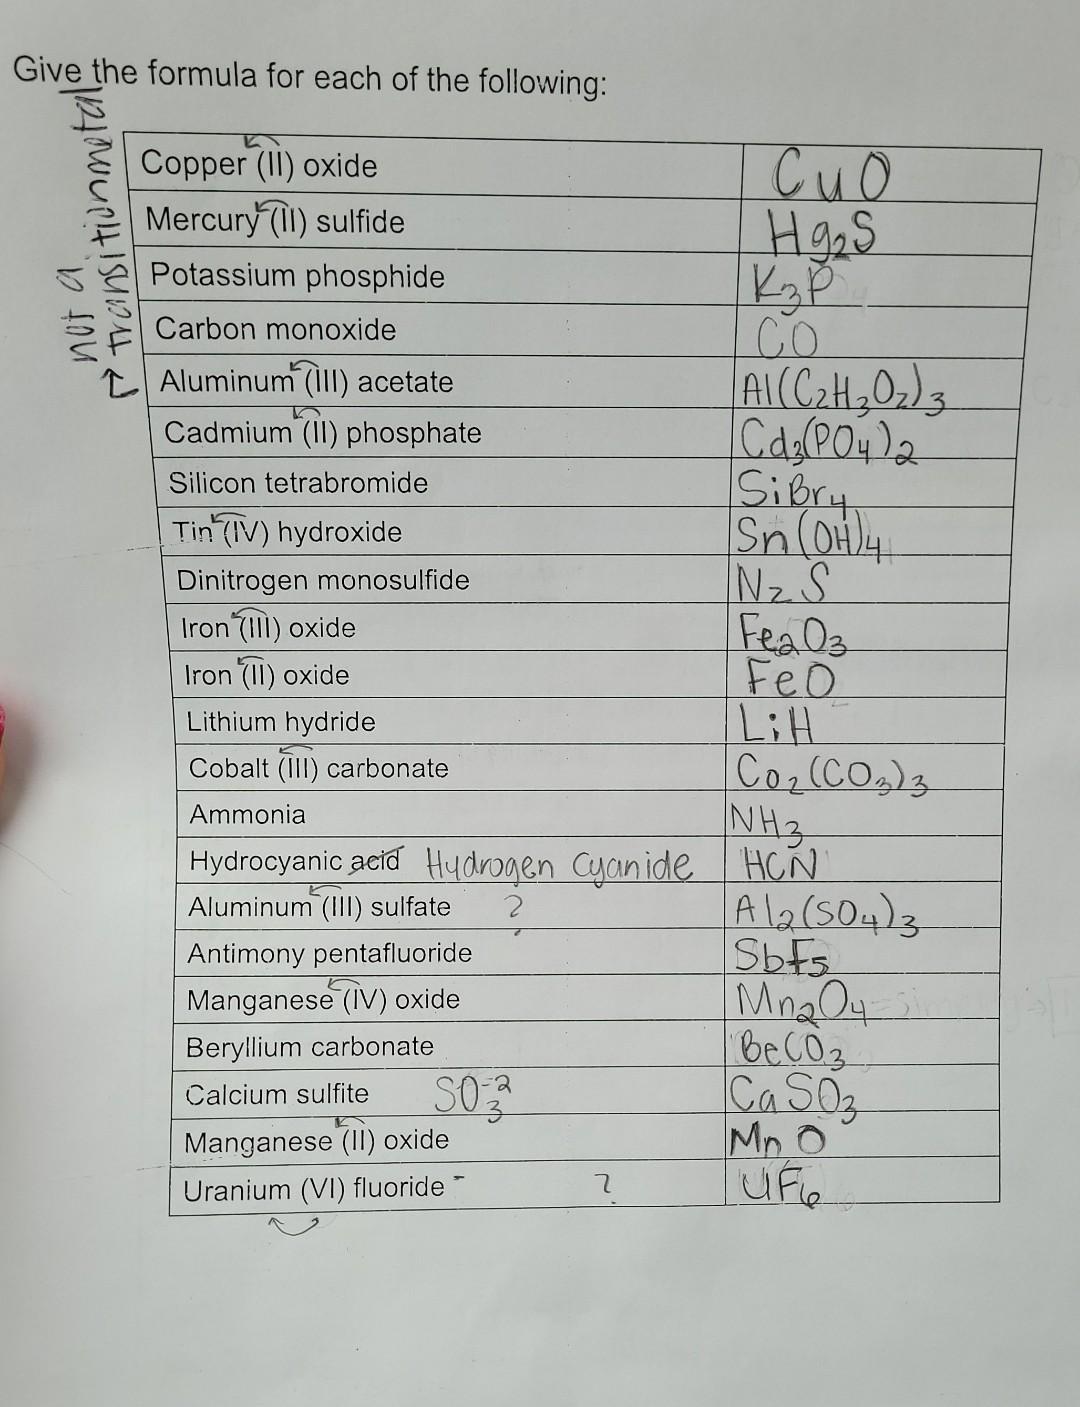 Give the formula for each of the following:
not a
transitionmetal
Copper (II) oxide CuO
Mercury (II) sulfide Hg₂S
Potassium phosphide K₃P
Carbon monoxide CO
Aluminum (III) acetate Al(C₂H₃O₂)₃
Cadmium (II) phosphate Cd₃(PO₄)₂
Silicon tetrabromide SiBr₄
Tin (IV) hydroxide Sn(OH)₄
Dinitrogen monosulfide N₂S
Iron (III) oxide Fe₂O₃
Iron (II) oxide FeO
Lithium hydride LiH
Cobalt (III) carbonate Co₂(CO₃)₃
Ammonia NH₃
Hydrocyanic acid Hydrogen Cyanide HCN
Aluminum (III) sulfate ? Al₂(SO₄)₃
Antimony pentafluoride SbF₅
Manganese (IV) oxide Mn₂O₄
Beryllium carbonate BeCO₃
Calcium sulfite SO₃⁻² CaSO₃
Manganese (II) oxide MnO
Uranium (VI) fluoride - ? UF₆